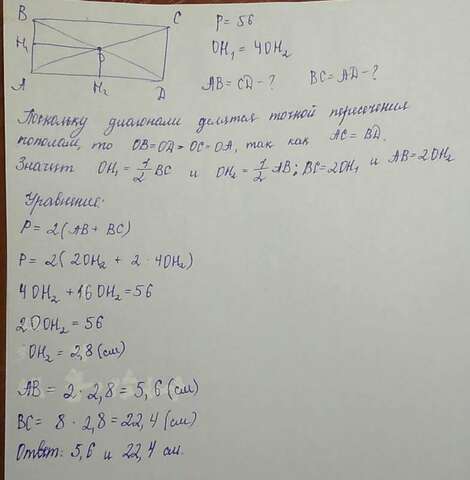 B C P = 56
H₁ O OH₁ = 4OH₂
A H₂ D AB = CD - ? BC = AD - ?
Поскольку диагонали делятся точкой пересечения
пополам, то OB=OD=OC=OA, так как AC = BD.
Значит OH₁ = 1/2 BC и OH₂ = 1/2 AB; BC=2OH₁ и AB=2OH₂
Уравнение:
P = 2(AB + BC)
P = 2(2OH₂ + 2 · 4OH₂)
4OH₂ + 16OH₂ = 56
20OH₂ = 56
OH₂ = 2,8 (см)
AB = 2 · 2,8 = 5,6 (см)
BC = 8 · 2,8 = 22,4 (см)
Ответ: 5,6 и 22,4 см.